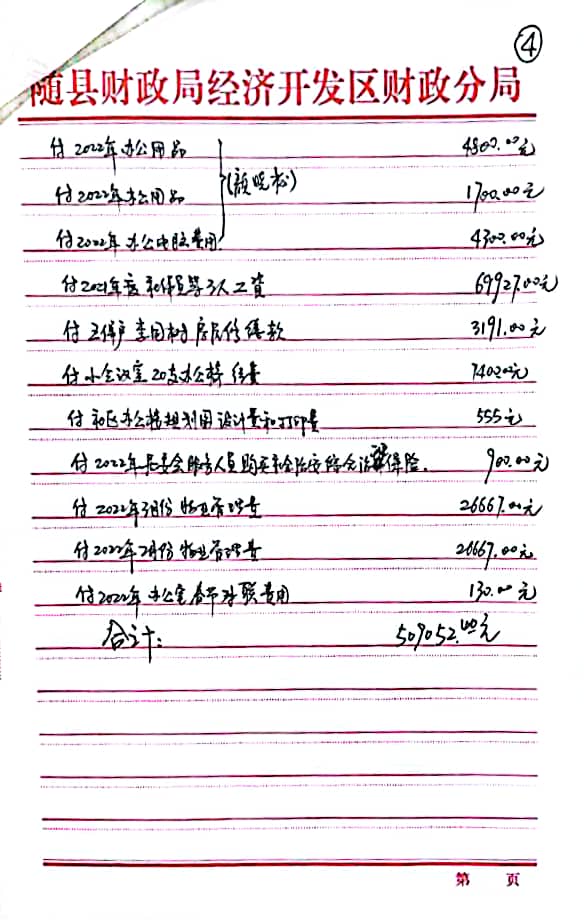 ④
随县财政局经济开发区财政分局
付2022年办公用品 4800.00元
付2022年办公用品 1700.00元
付2022年办公电脑费用 4300.00元
付2021年度 人工资 69927.00元
付五保户李国 3191.00元
付小会议室 办公 7402.00元
付社区办公楼规划图设计费和打印费 555元
付2022年 人员购买 治安综合治理保险. 900.00元
付2022年3月份物业管理费 26667.00元
付2022年2月份物业管理费 26667.00元
付2022年办公室春节对联费用 130.00元
合计: 509052.00元
第 页